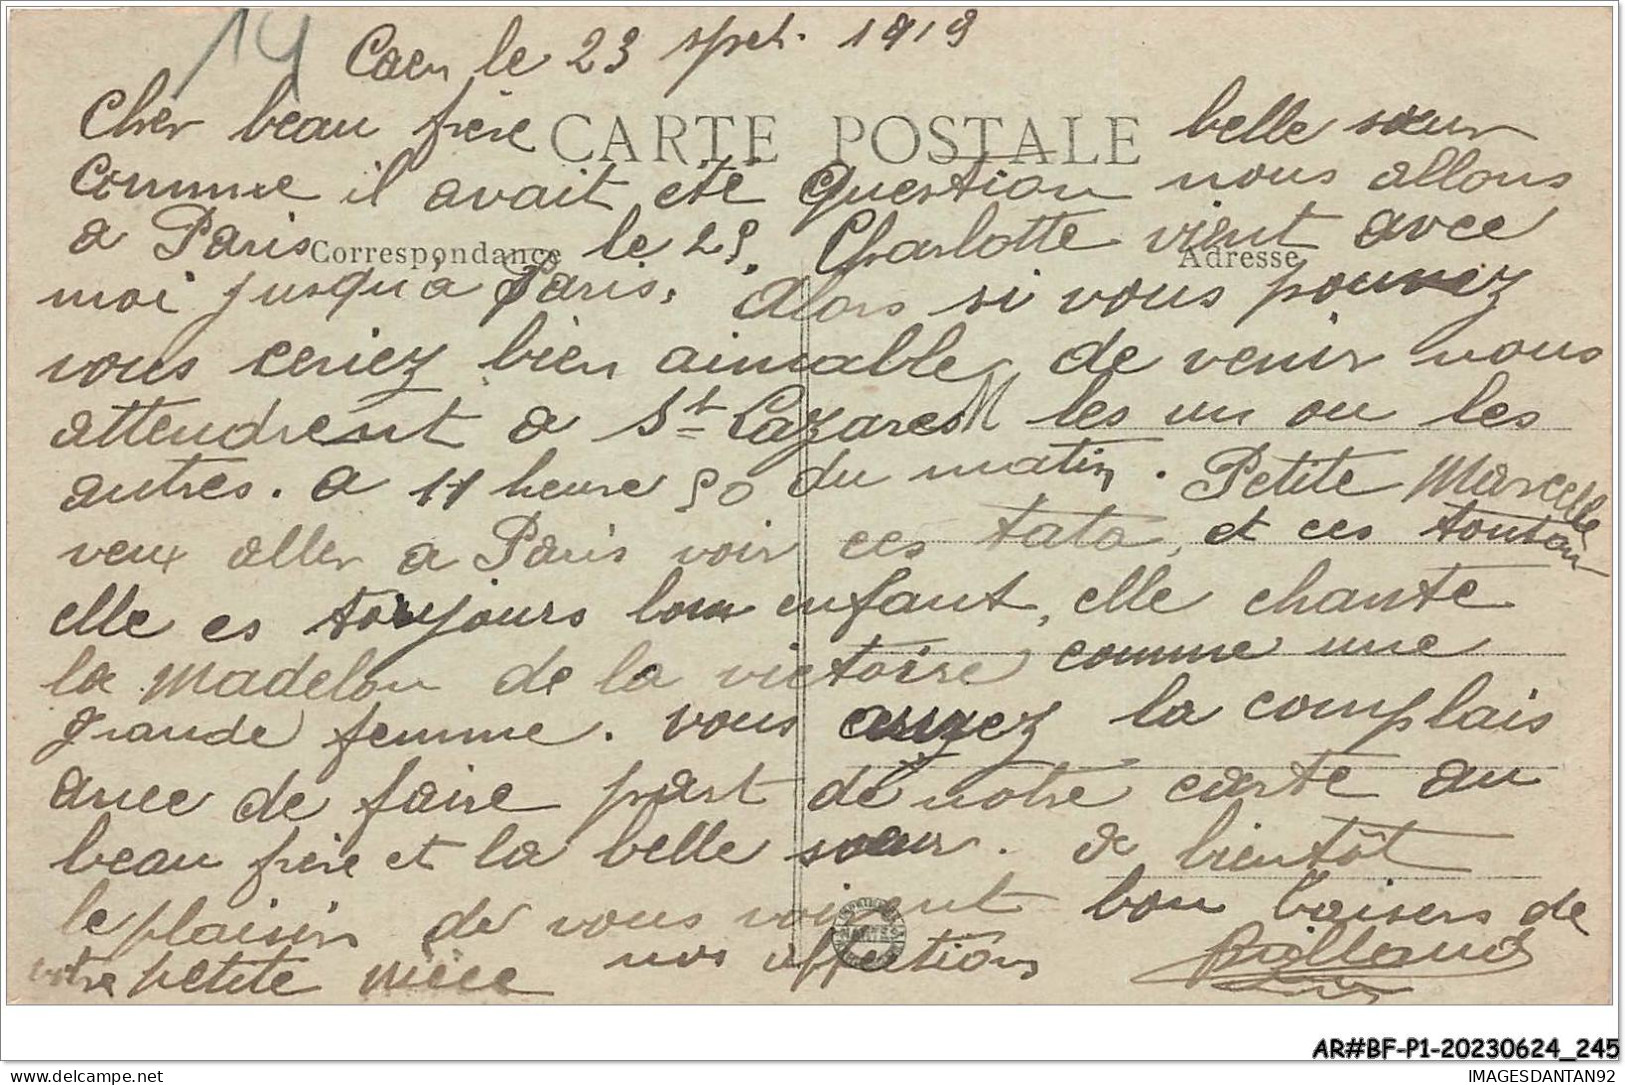 14
Caen le 23 spet. 1919
Cher beau frère CARTE POSTALE belle sœur
comme il avait été question nous allons
a Paris Correspondance le 25. Charlotte vient avec
Adresse
moi jusqu'à Paris. Alors si vous pouvez
vous ceriez bien aimable de venir nous
attendrent a St Lazares les un ou les
autres. a 11 heure 50 du matin. Petite Marcelle
veux aller a Paris voir ces tata, et ces tonton
elle es toujours bon enfant, elle chante
la Madelon de la victoire comme une
grande femme. vous aurez la complais
ance de faire part de notre carte au
beau frère et la belle sœur. a bientôt
le plaisir de vous voirent bon baisers de
votre petite nièce nos affections
AR#BF-P1-20230624_245
delcampe.net
IMAGESDANTAN92